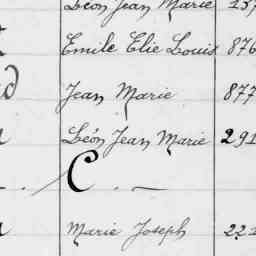 Léon Jean Marie
Emile Elie Louis 876
Jean Marie 877
Léon Jean Marie 291
C
Marie Joseph 222